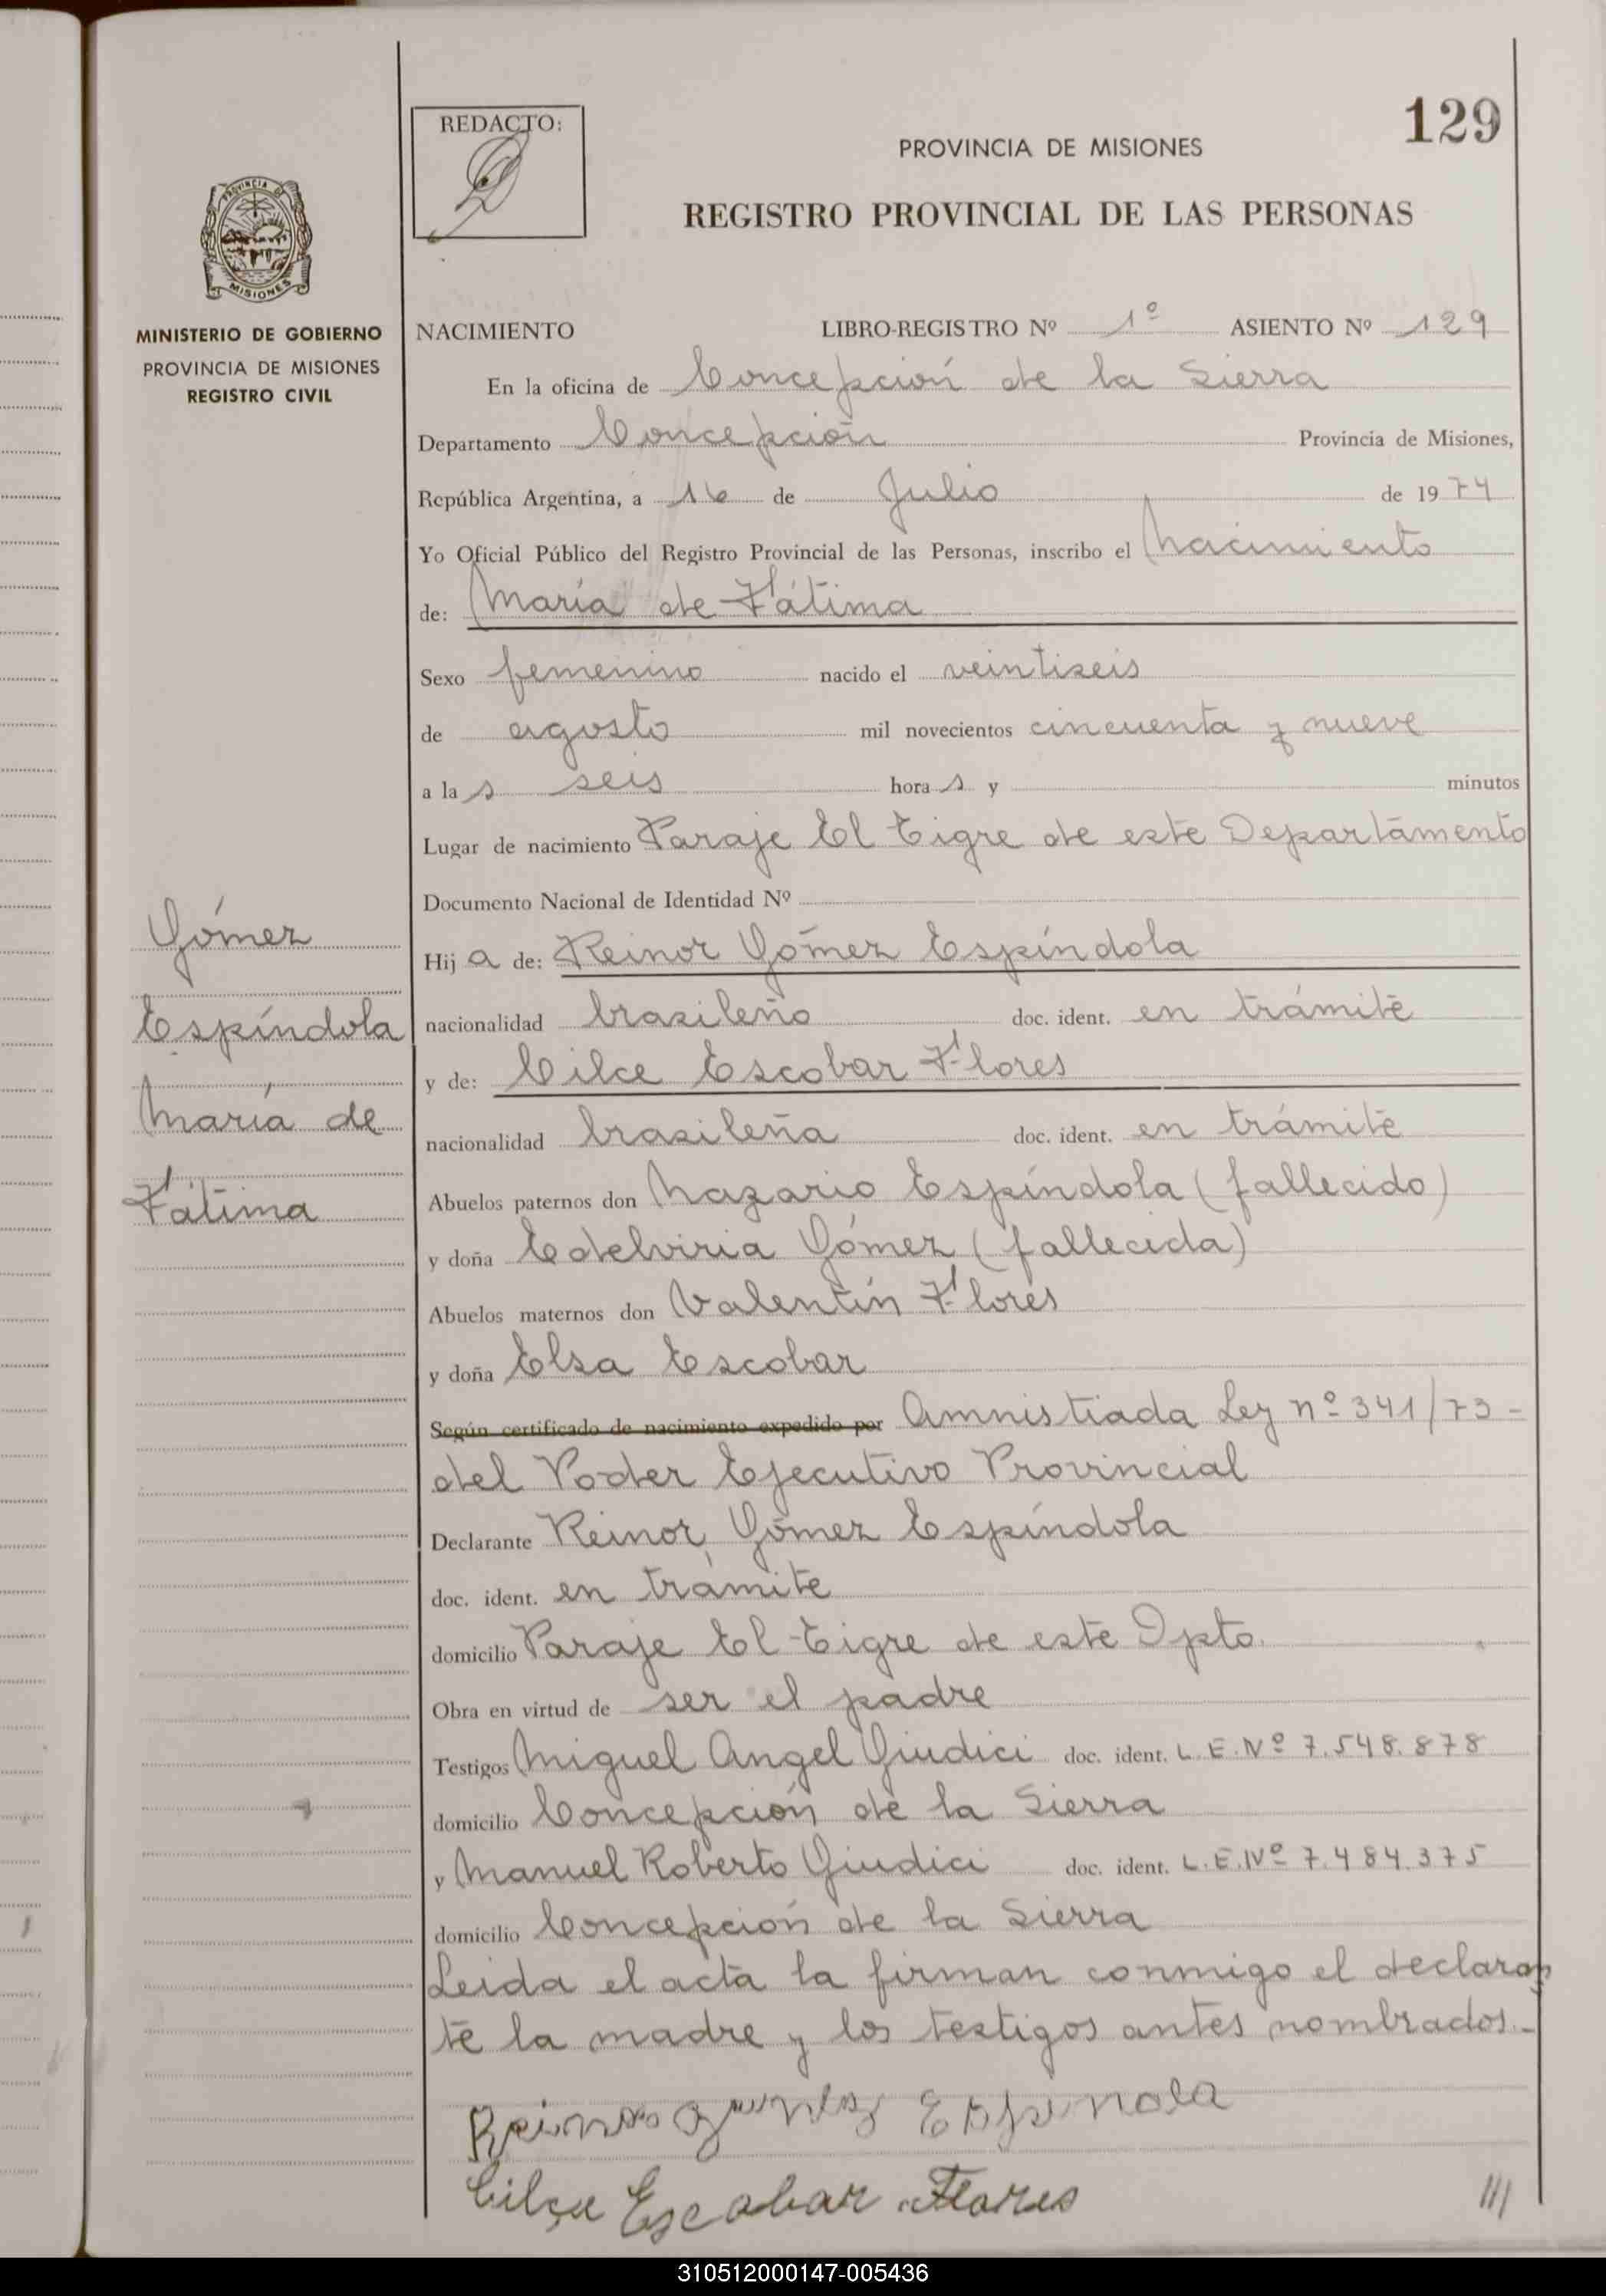 129
REDACTO:
PROVINCIA DE MISIONES
REGISTRO PROVINCIAL DE LAS PERSONAS
PROVINCIA DE
MISIONES
MINISTERIO DE GOBIERNO
PROVINCIA DE MISIONES
REGISTRO CIVIL
NACIMIENTO LIBRO-REGISTRO Nº 1º ASIENTO Nº 129
En la oficina de Concepción de la Sierra
Departamento Concepción Provincia de Misiones,
República Argentina, a 16 de Julio de 1974
Yo Oficial Público del Registro Provincial de las Personas, inscribo el Nacimiento
de: María de Fátima
Sexo femenino nacido el veintiseis
de agosto mil novecientos cincuenta y nueve
a la s seis hora s y minutos
Lugar de nacimiento Paraje El Tigre de este Departamento
Documento Nacional de Identidad Nº
Gómez
Espíndola
María de
Fátima
Hij a de: Reinor Gómez Espíndola
nacionalidad brasileño doc. ident. en trámite
y de: Cilce Escobar Flores
nacionalidad brasileña doc. ident. en trámite
Abuelos paternos don Nazario Espíndola (fallecido)
y doña Edelviria Gómez (fallecida)
Abuelos maternos don Valentín Flores
y doña Elsa Escobar
Según certificado de nacimiento expedido por Amnistiada Ley nº 341/73-
del Poder Ejecutivo Provincial
Declarante Reinor Gómez Espíndola
doc. ident. en trámite
domicilio Paraje El Tigre de este Dpto.
Obra en virtud de ser el padre
Testigos Miguel Angel Giudici doc. ident. L.E.Nº 7.548.878
domicilio Concepción de la Sierra
y Manuel Roberto Giudici doc. ident. L.E.Nº 7.484.375
domicilio Concepción de la Sierra
Leida el acta la firman conmigo el declaran
te la madre y los testigos antes nombrados.-
Espinola
Escobar Flores
///
310512000147-005436